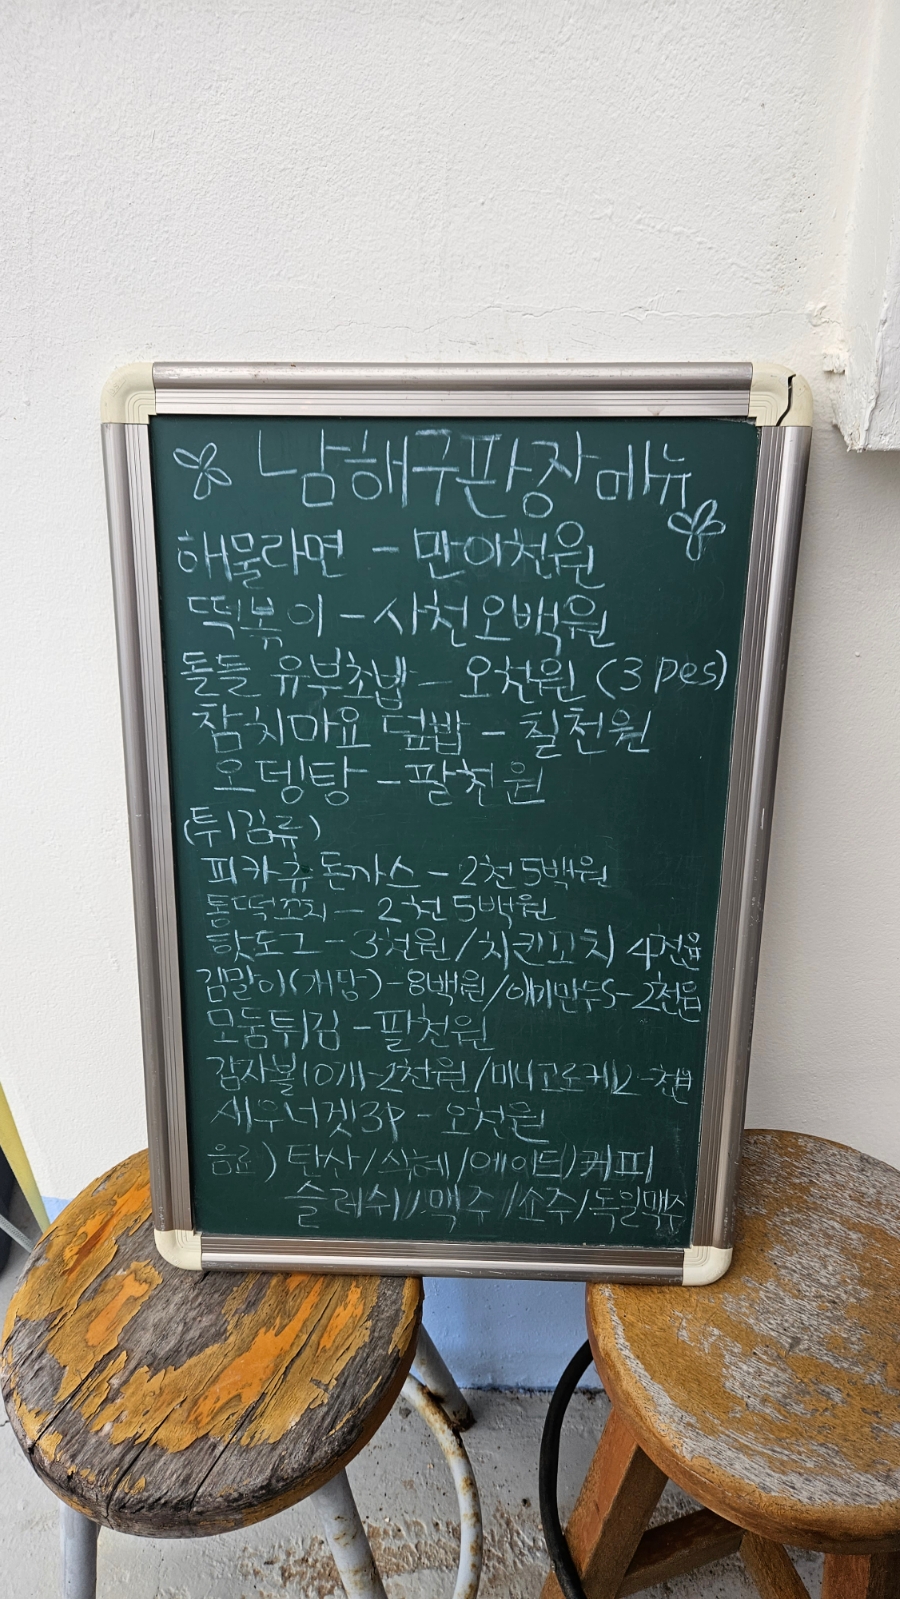 남해구판장메뉴
해물라면 - 만이천원
떡볶이 - 사천오백원
돌돌 유부초밥 - 오천원 (3 pes)
참치마요 덮밥 - 칠천원
오뎅탕 - 팔천원
(튀김류)
피카츄 돈까스 - 2천5백원
통떡꼬지 - 2천5백원
핫도그 - 3천원/치킨꼬치 4천원
김말이(개당) - 8백원/애기만두5 - 2천원
모둠튀김 - 팔천원
감자볼10개 - 2천원/미니고로케2 - 천원
새우너겟3P - 오천원
음료) 탄산/식혜/에이드/커피
슬러쉬/맥주/소주/독일맥주